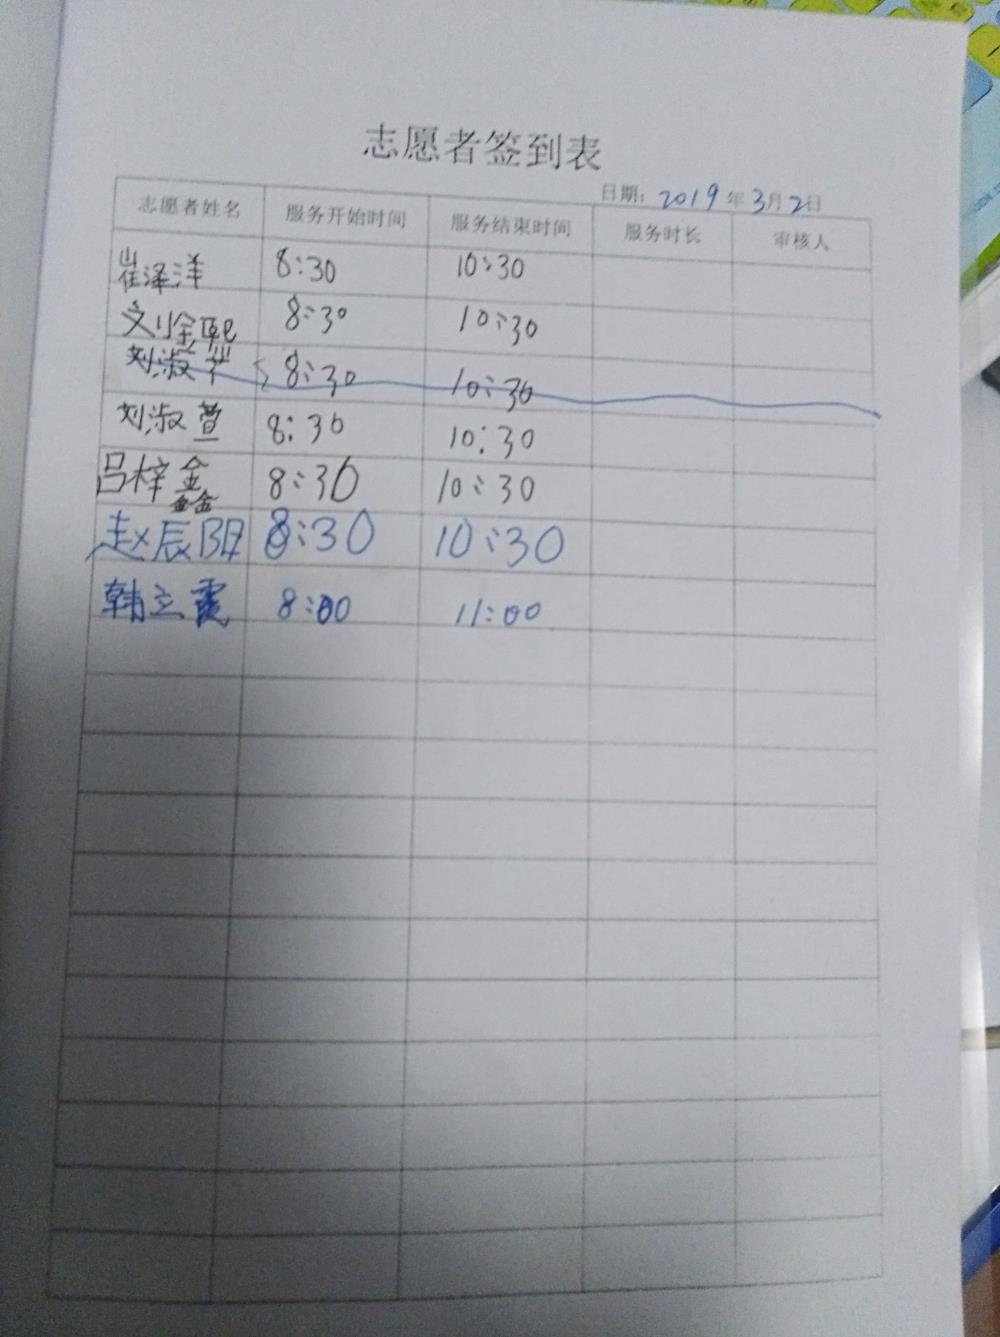 志愿者签到表
日期: 2019年3月2日
志愿者姓名 服务开始时间 服务结束时间 服务时长 审核人
崔泽洋 8:30 10:30
刘金熙 8:30 10:30
刘淑 8:30 10:30
刘淑萱 8:30 10:30
吕梓鑫 8:30 10:30
赵辰阳 8:30 10:30
韩立霞 8:00 11:00